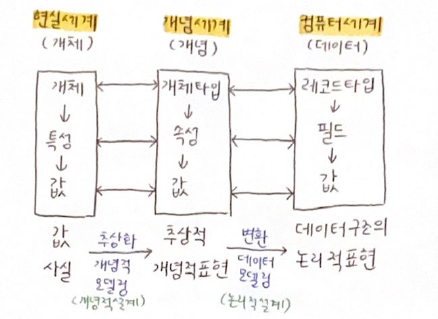 현실세계 개념세계 컴퓨터세계
(개체) (개념) (데이터)
개체 개체타입 레코드타입
특성 속성 필드
값 값 값
값 추상화 추상적 변환 데이터구조의
사실 개념적 개념적표현 데이터 논리적표현
모델링 모델링
(개념적설계) (논리적설계)